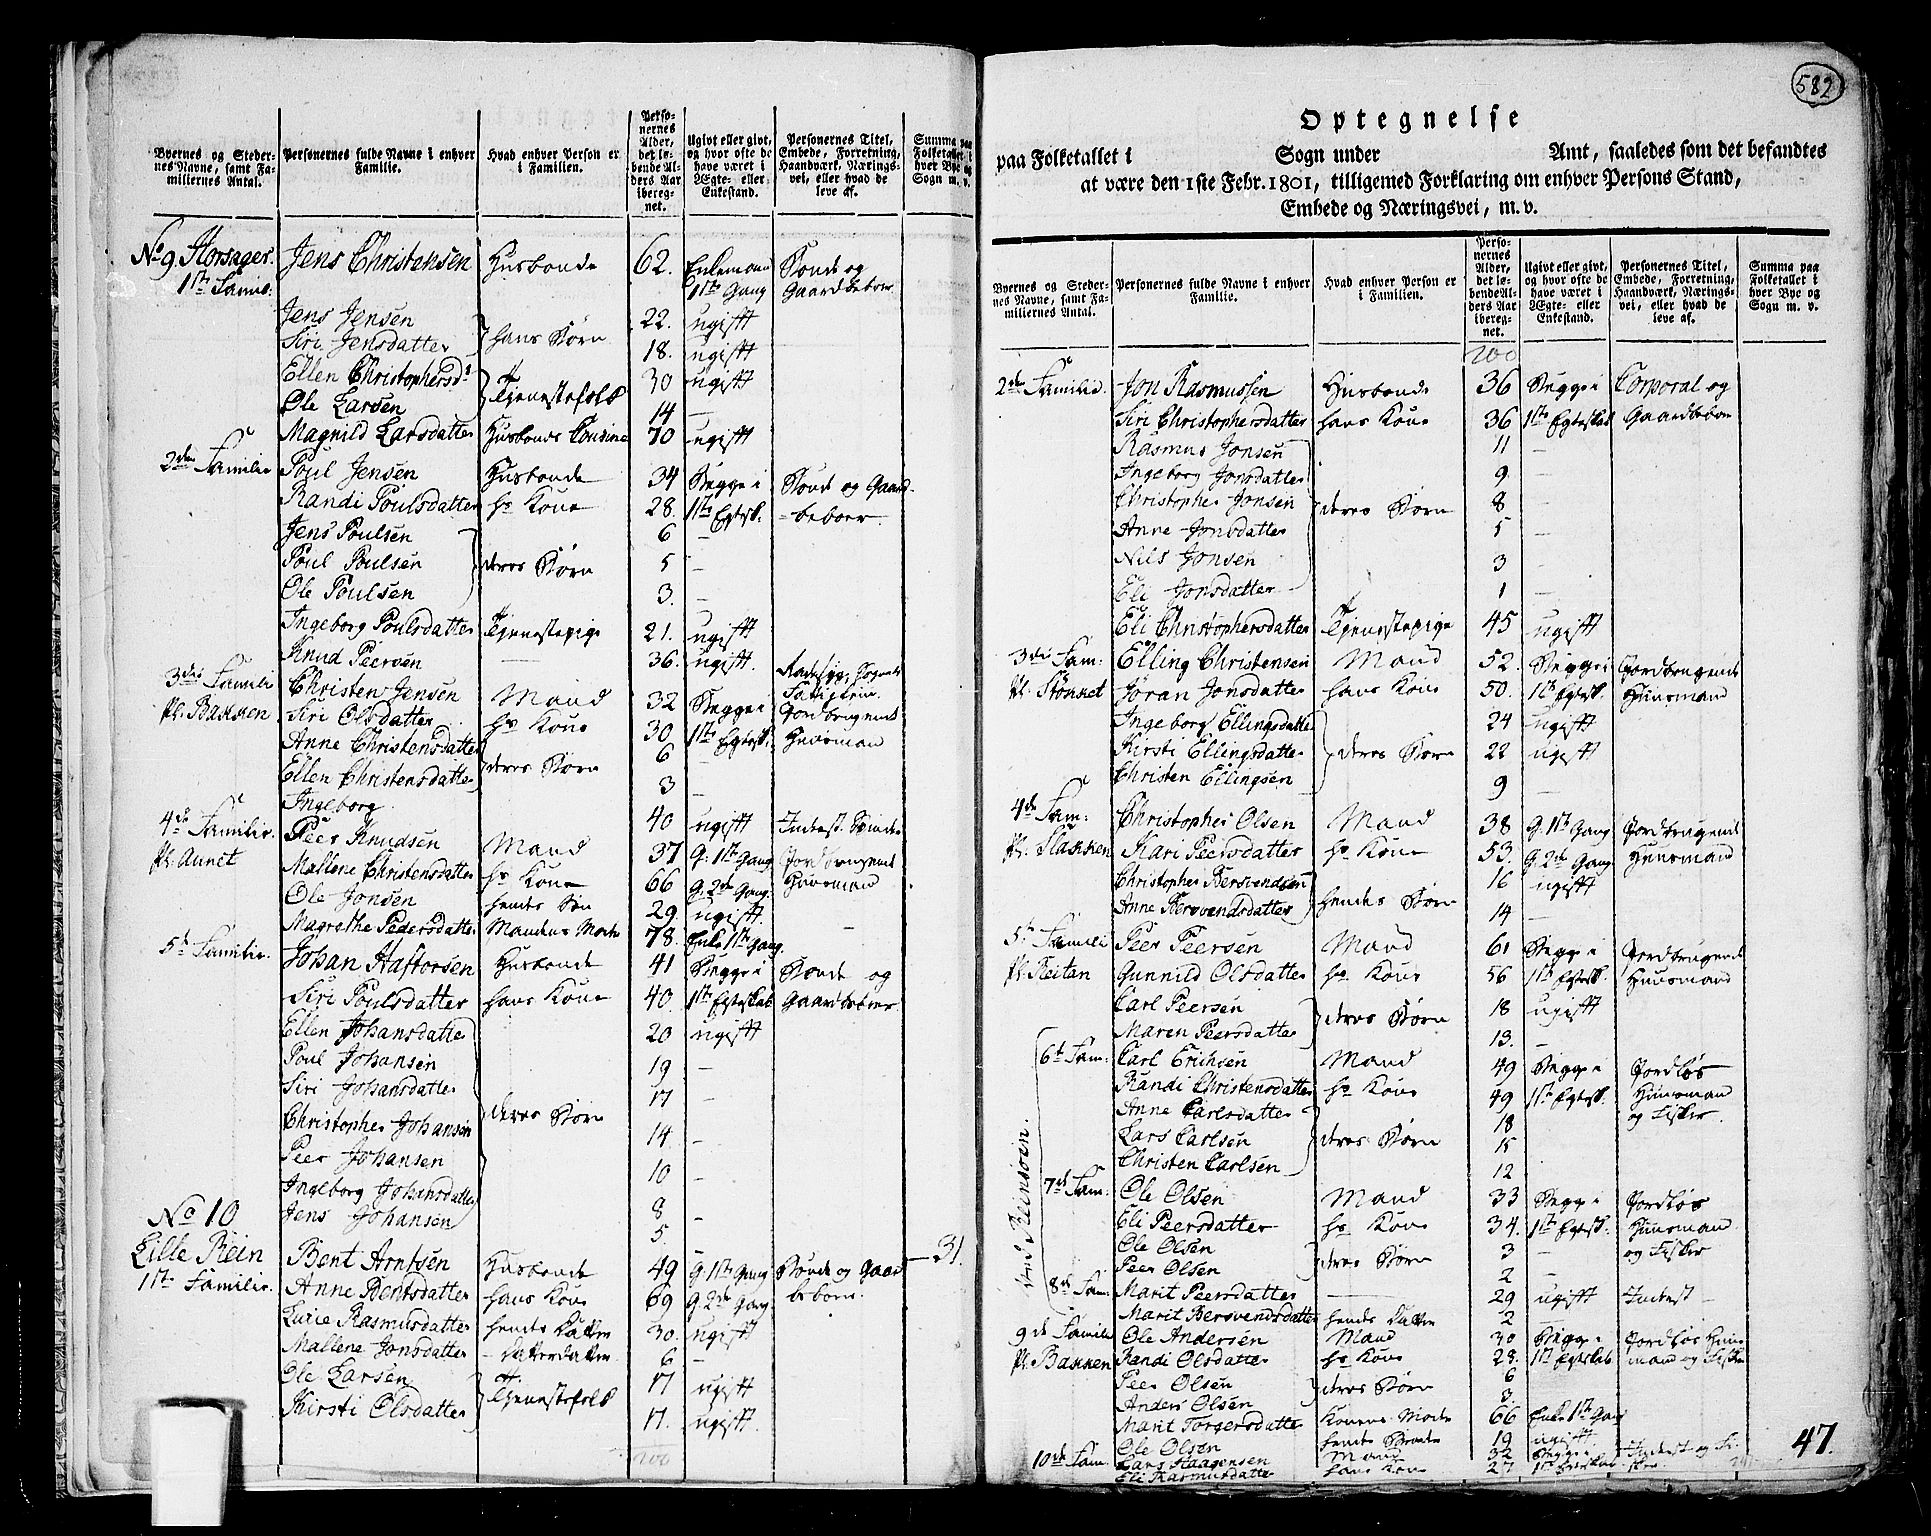 Byernes og Stedernes Navne, samt Familiernes Antal.
Personernes fulde Navne i enhver Familie.
Hvad enhver Person er i Familien.
Personernes Alder, det løbende Alders Aar iberegnet.
Ugivt eller givt, og hvor ofte de have været i Ægte- eller Enkestand.
Personernes Titel, Embede, Forretning, Haandværk, Næringsvei, eller hvad de leve af.
Summa paa Folketallet i hver Bye og Sogn m. v.
No 9 Horsager. Jens Christensen Husbonde 62. Enkemand Bonde og
1ste Famil: 1ste Gang Gaardbeboer
Jens Jensen 22. ugift
Siri Jensdatter hans Børn 18. ugift
Ellen Christophersd: 30 ugift
Ole Larsen Tjenestefolk 14 —
Magnild Larsdatter Husbonds Cousine 70 ugift
2den Familie Poul Jensen Husbonde 34 Begge i Bonde og Gaard-
Randi Poulsdatter hs Kone 28. 1ste Egtesk: =beboer.
Jens Poulsen 6 —
Poul Poulsen deres Børn 5 —
Ole Poulsen 3. —
Ingeborg Poulsdatter Tjenestepige 21. ugift
Knud Peersen — 36. ugift.
3die Famili Christen Jensen Mand 32 Begge i Jordbrugende
Pl: Bakken Siri Olsdatter hs Kone 30 1ste Egtesk: Huusmand
Anne Christensdatter 6 —
Ellen Christensdatter deres Børn 3 —
Ingeborg 40 ugift Inderst.
4de Familie. Peer Knudsen Mand 37 G: 1ste Gang Jordbrugende
Pl: Aunet Mallene Christensdatter hs Kone 66 G: 2den Gang. Huusmand
Ole Jonsen hendes Søn 29 ugift
Magrethe Pedersdatter Mandens Moder 78. Enke 1ste Gang. —
5te Familie. Johan Haftorsen Husbonde 41 Begge i Bonde og
Siri Poulsdatter hans Kone 40. 1ste Egteskab Gaardbeboer
Ellen Johansdatter 20 ugift
Poul Johansen 19 —
Siri Johansdatter 17 —
Christopher Johansen deres Børn 14 —
Peer Johansen 10 —
Ingeborg Johansdatter 8 —
Jens Johansen 5 —
No 10
Lille Rein Bent Arntsen Husbonde 49 G: 1ste Gang Bonde og Gaard — 31.
1ste Familie. Anne Bentsdatter hans Kone 69 G: 2den Gang. beboer.
Lucie Rasmusdatter hendes Datter 30. ugift
Mallene Jonsdatter — Datterdatter 6 —
Ole Larsen 17 ugift
Kirsti Olsdatter Tjenestefolk 17. ugift
200
582
Optegnelse
paa Folketallet i Sogn under Amt, saaledes som det befandtes
at være den 1ste Febr. 1801, tilligemed Forklaring om enhver Persons Stand,
Embede og Næringsvei, m. v.
Byernes og Stedernes Navne, samt Familiernes Antal.
Personernes fulde Navne i enhver Familie.
Hvad enhver Person er i Familien.
Personernes Alder, det løbende Alders Aar iberegnet.
Ugivt eller givt, og hvor ofte de have været i Ægte- eller Enkestand.
Personernes Titel, Embede, Forretning, Haandværk, Næringsvei, eller hvad de leve af.
Summa paa Folketallet i hver Bye og Sogn m. v.
200
2den Familie. Jon Rasmussen Husbonde 36 Begge i Corporal og
Siri Christophersdatter hans Kone 36 1ste Egteskab Gaardbeboer
Rasmus Jonsen 11 —
Ingeborg Jonsdatter 9 —
Christopher Jonsen deres Børn 8 —
Anne Jonsdatter 5 —
Nils Jonsen 3 —
Eli Jonsdatter 1 —
Eli Christophersdatter Tjenestepige 45 ugift
3die Fam: Elling Christensen Mand 52. Begge i Jordbrugende
Pl: Stokket Jøran Jonsdatter hans Kone 50. 1ste Egtesk: Huusmand
Ingeborg Ellingsdatter 24 ugift
Kirsti Ellingsdatter deres Børn 22 ugift
Christen Ellingsen 9 —
4de Fam: Christopher Olsen Mand 38 G: 1ste Gang Jordbrugende
Pl: Flakken Kari Peersdatter hs Kone 53. G: 2den Gang Huusmand
Christopher Bersvendsen 16 ugift
Anne Bersvendsdatter hendes Børn 14 —
5te Famili Peer Peersen Mand 61 Begge i Jordbrugende
Pl: Reitan Gunnild Olsdatter hs Kone 56 1ste Egtesk: Huusmand
Carl Peersen 18 ugift
Maren Peersdatter deres Børn 13. —
6te Fam: Carl Erichsen Mand 49 Begge i Jordløs
Randi Christensdatter hs Kone 49 1ste Egtesk: Huusmand
Anne Carlsdatter 18 og Fisker.
Lars Carlsen deres Børn 15
Christen Carlsen 12
ved Reinsøen.
7de Fam: Ole Olsen Mand 33 Begge i Jordløs
Eli Peersdatter hs Kone 34. 1ste Egtesk: Huusmand
Ole Olsen 3 — og Fisker
Peer Olsen deres Børn 2 —
8de Fam: Marit Peersdatter — 29 ugift Inderst —
Marit Bersvendsdatter hendes Datter 2 —
9de Famili Ole Andersen Mand 30 Begge i Jordløs Huus-
Pl: Bakken Randi Olsdatter hs Kone 28. 1ste Egteskab mand og Fisker
Peer Olsen 6
Anders Olsen deres Børn 3.
Marit Torgersdatter Konens Moder 66 Enke 1ste Gang
Ole Olsen hendes Broder 19 ugift
10de Fam: Lars Haagensen Mand 32 Begge i Inderst og Fi-
Eli Rasmusdatter hans Kone 27 1ste Egteskab sker
47.